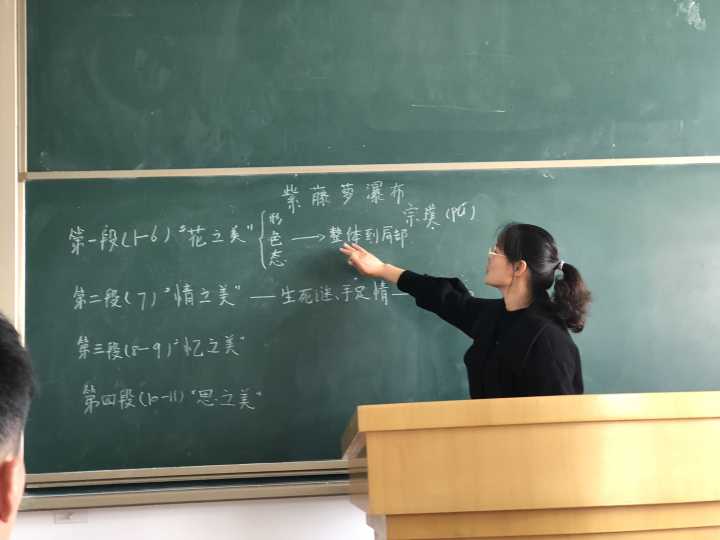 紫藤萝瀑布
宗璞
第一段(1-6)"花之美" 形 色 态 → 整体到局部
第二段(7)"情之美" — 生死谜、手足情 —
第三段(8-9)"忆之美"
第四段(10-11)"思之美"